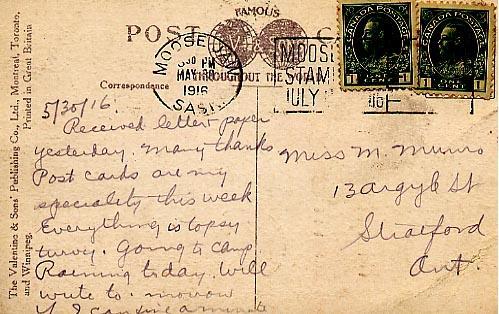 FAMOUS
POST C
THROUGHOUT THE
MOOSE JAW
30 PM
MAY 30
1916
SASK
MOOSE
STAM
JULY
CANADA POSTAGE
1 CENT 1
CANADA POSTAGE
1 CENT 1
Correspondence
The Valentine & Sons' Publishing Co., Ltd., Montreal, Toronto,
and Winnipeg.
Printed in Great Britain
5/30/16.
Received letter paper
yesterday. Many thanks
Post cards are my
speciality this week
Everything is topsy
turvy. Going to camp
Raining today. Will
write to-morrow
if I can find a minute
Miss M. Munro
13 Argyle St
Stratford
Ont.